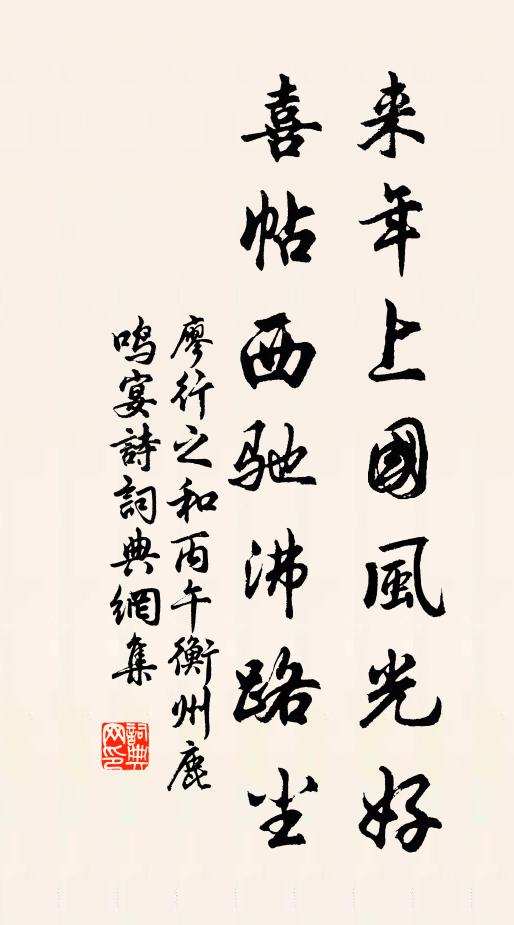 来年上國風光好
喜帖西驰沸路尘
廖行之和丙午衡州鹿
鸣宴詩詞典網集
詞典网印